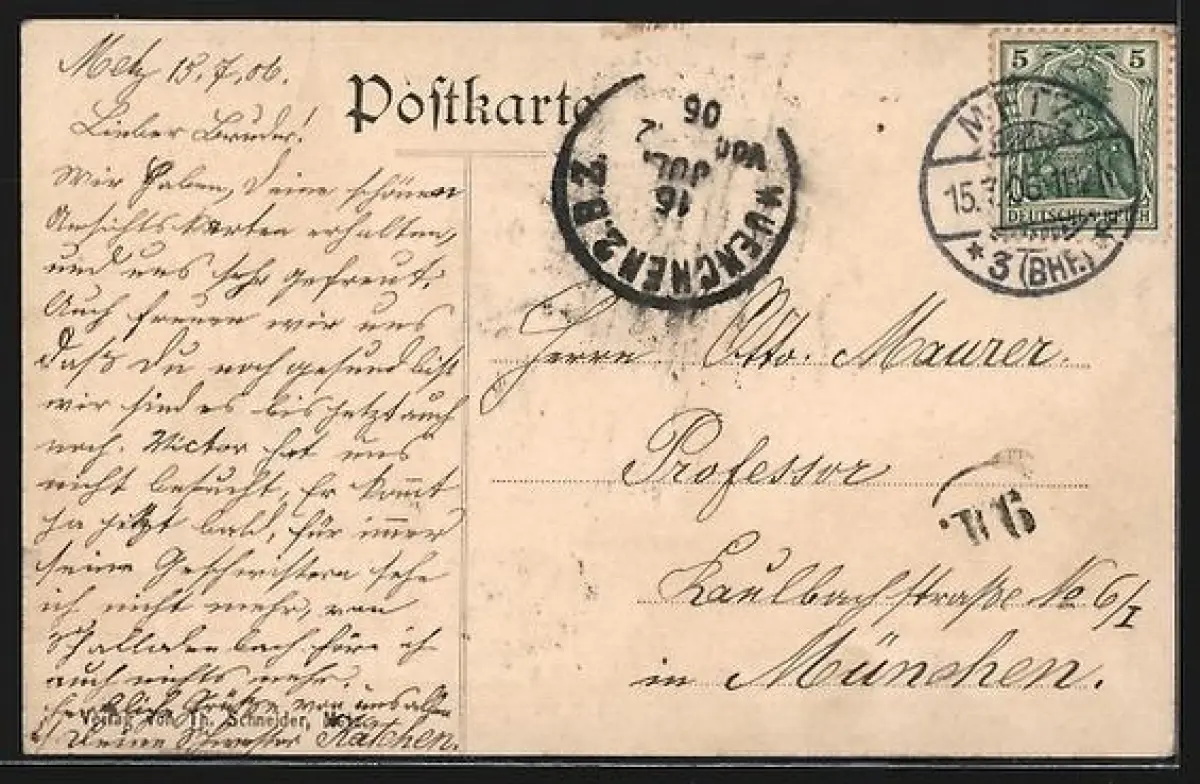 Metz 15.7.06.
Lieber Bruder!
Wir haben, Deine schönen
Ansichtskarten erhalten,
und uns sehr gefreut.
Auch freuen wir uns
daß Du noch gesund bist
wir sind es bis jetzt auch
noch. Victor hat uns
nicht besucht, Er kommt
ja jetzt bald, für immer
seine Geschwistern sehe
ich nicht mehr, von
höre ich
auch nichts mehr.
Herzliche Grüße von uns allen
Deine Schwester Kätchen.
Verlag von Th. Schneider, Metz.
Postkarte
MUENCHEN 2. B.Z.
16
JUL.
VOR
06
5 5
DEUTSCHES REICH
METZ
15.7.06.11-12
* 3 (BHF.) *
Herrn Otto Maurer.
Professor
Kaulbachstraße No 6/I
in München.